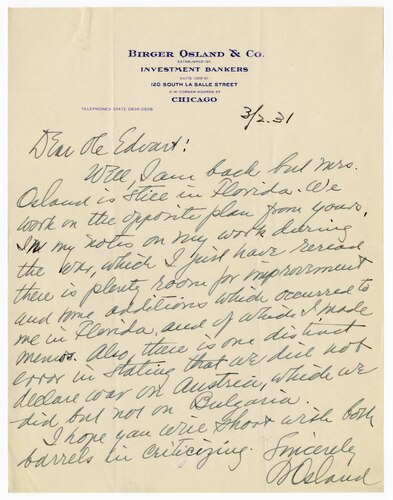 BIRGER OSLAND & CO.
ESTABLISHED 1911
INVESTMENT BANKERS
120 SOUTH LA SALLE STREET
S.W. CORNER MONROE ST.
CHICAGO
TELEPHONES STATE 0835-0836
3/2.31
Dear Ole Edvart:
Well I am back but Mrs.
Osland is still in Florida. We
work on the opposite plan from yours.
In my notes on my work during
the war, which I just have reread
there is plenty room for improvement
and some additions which occurred to
me in Florida, and of which I made
memos. Also, there is one distinct
error in stating that we did not
declare war on Austria, which we
did but not on Bulgaria.
I hope you will shoot with both
barrels in criticizing. Sincerely
BOsland